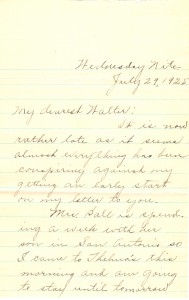 Wednesday Nite
July 29, 1925
My dearest Walter:
It is now
rather late as it seems
almost everything has been
conspiring against my
getting an early start
on my letter to you.
Mrs. Ball is spend-
ing a week with her
son in San Antonio so
I came to Thelma's this
morning and am going
to stay until tomorrow